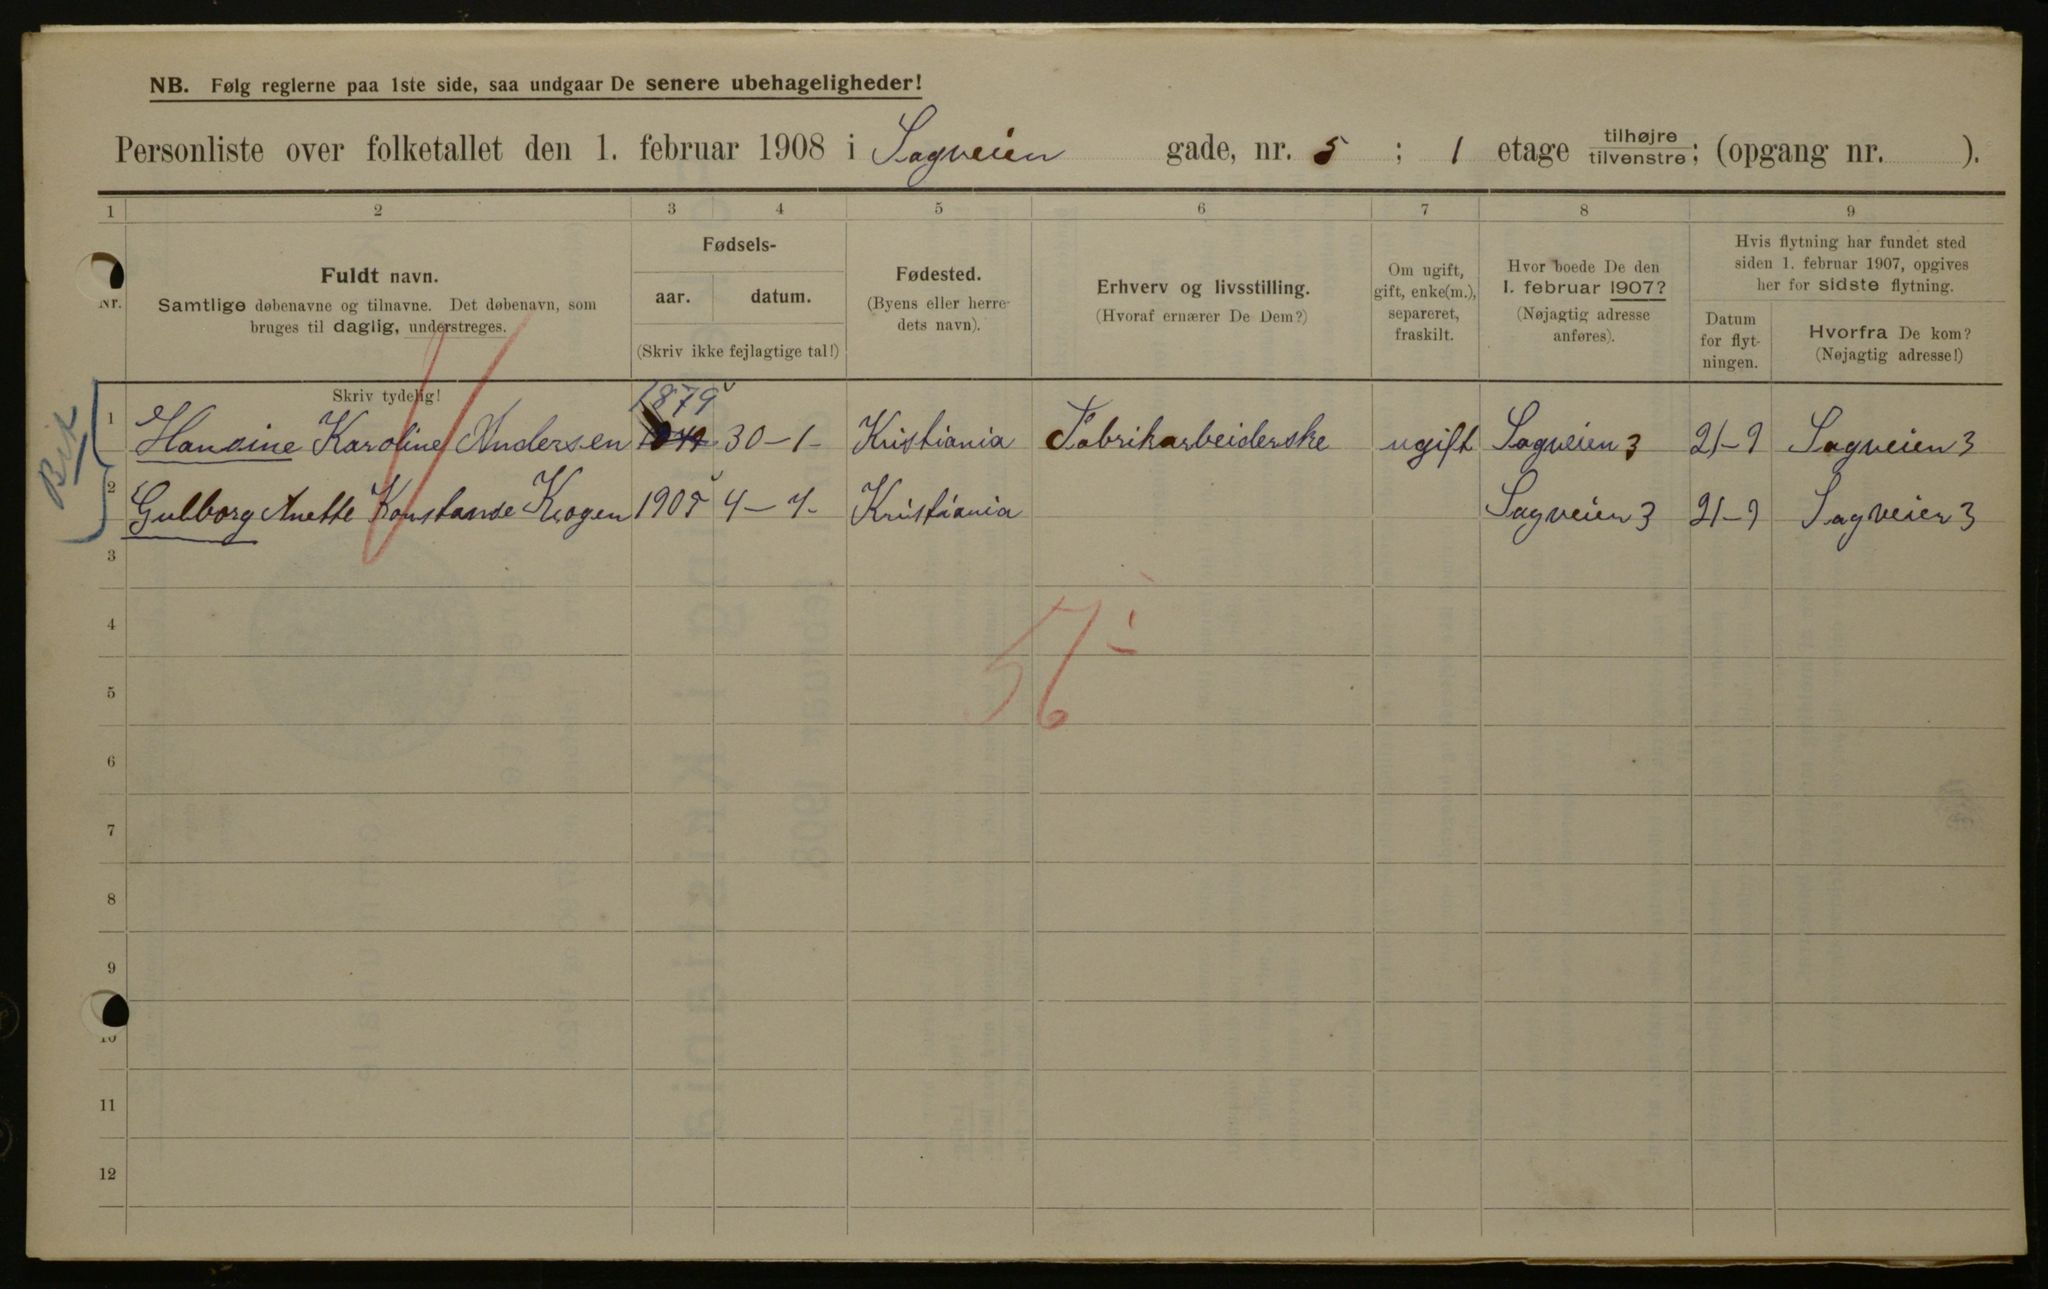 NB. Følg reglerne paa 1ste side, saa undgaar De senere ubehageligheder!
Personliste over folketallet den 1. februar 1908 i Sagveien gade, nr. 5 ; 1 etage tilhøjre tilvenstre; (opgang nr. ).
1 2 3 4 5 6 7 8 9
Nr.
Fuldt navn.
Samtlige døbenavne og tilnavne. Det døbenavn, som
bruges til daglig, understreges.
Skriv tydelig!
Fødsels-
aar. datum.
(Skriv ikke fejlagtige tal!)
Fødested.
(Byens eller herre-
dets navn).
Erhverv og livsstilling.
(Hvoraf ernærer De Dem?)
Om ugift,
gift, enke(m.),
separeret,
fraskilt.
Hvor boede De den
1. februar 1907?
(Nøjagtig adresse
anføres).
Hvis flytning har fundet sted
siden 1. februar 1907, opgives
her for sidste flytning.
Datum
for flyt-
ningen.
Hvorfra De kom?
(Nøjagtig adresse!)
1879
1 Hansine Karoline Andersen 30-1- Kristiania Fabrikarbeiderske ugift Sagveien 3 21-9 Sagveien 3
2 Gulborg Anette Konstanse Krogen 1905 4-7- Kristiania Sagveien 3 21-9 Sagveien 3
3
4
5
6
7
8
9
10
11
12